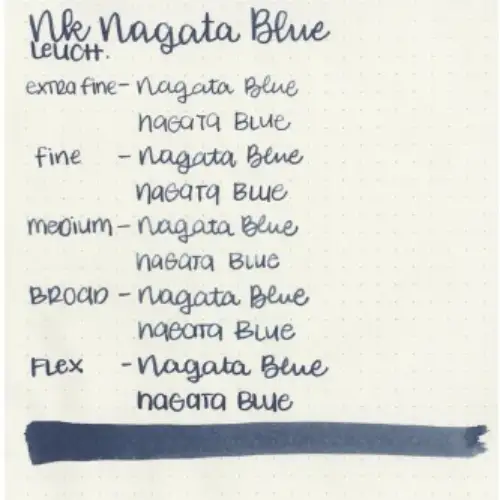 Nk Nagata Blue
Leucht.
extra fine - Nagata Blue
nagata Blue
fine - Nagata Blue
nagata Blue
medium - Nagata Blue
nagata Blue
Broad - Nagata Blue
nagata Blue
Flex - Nagata Blue
nagata Blue